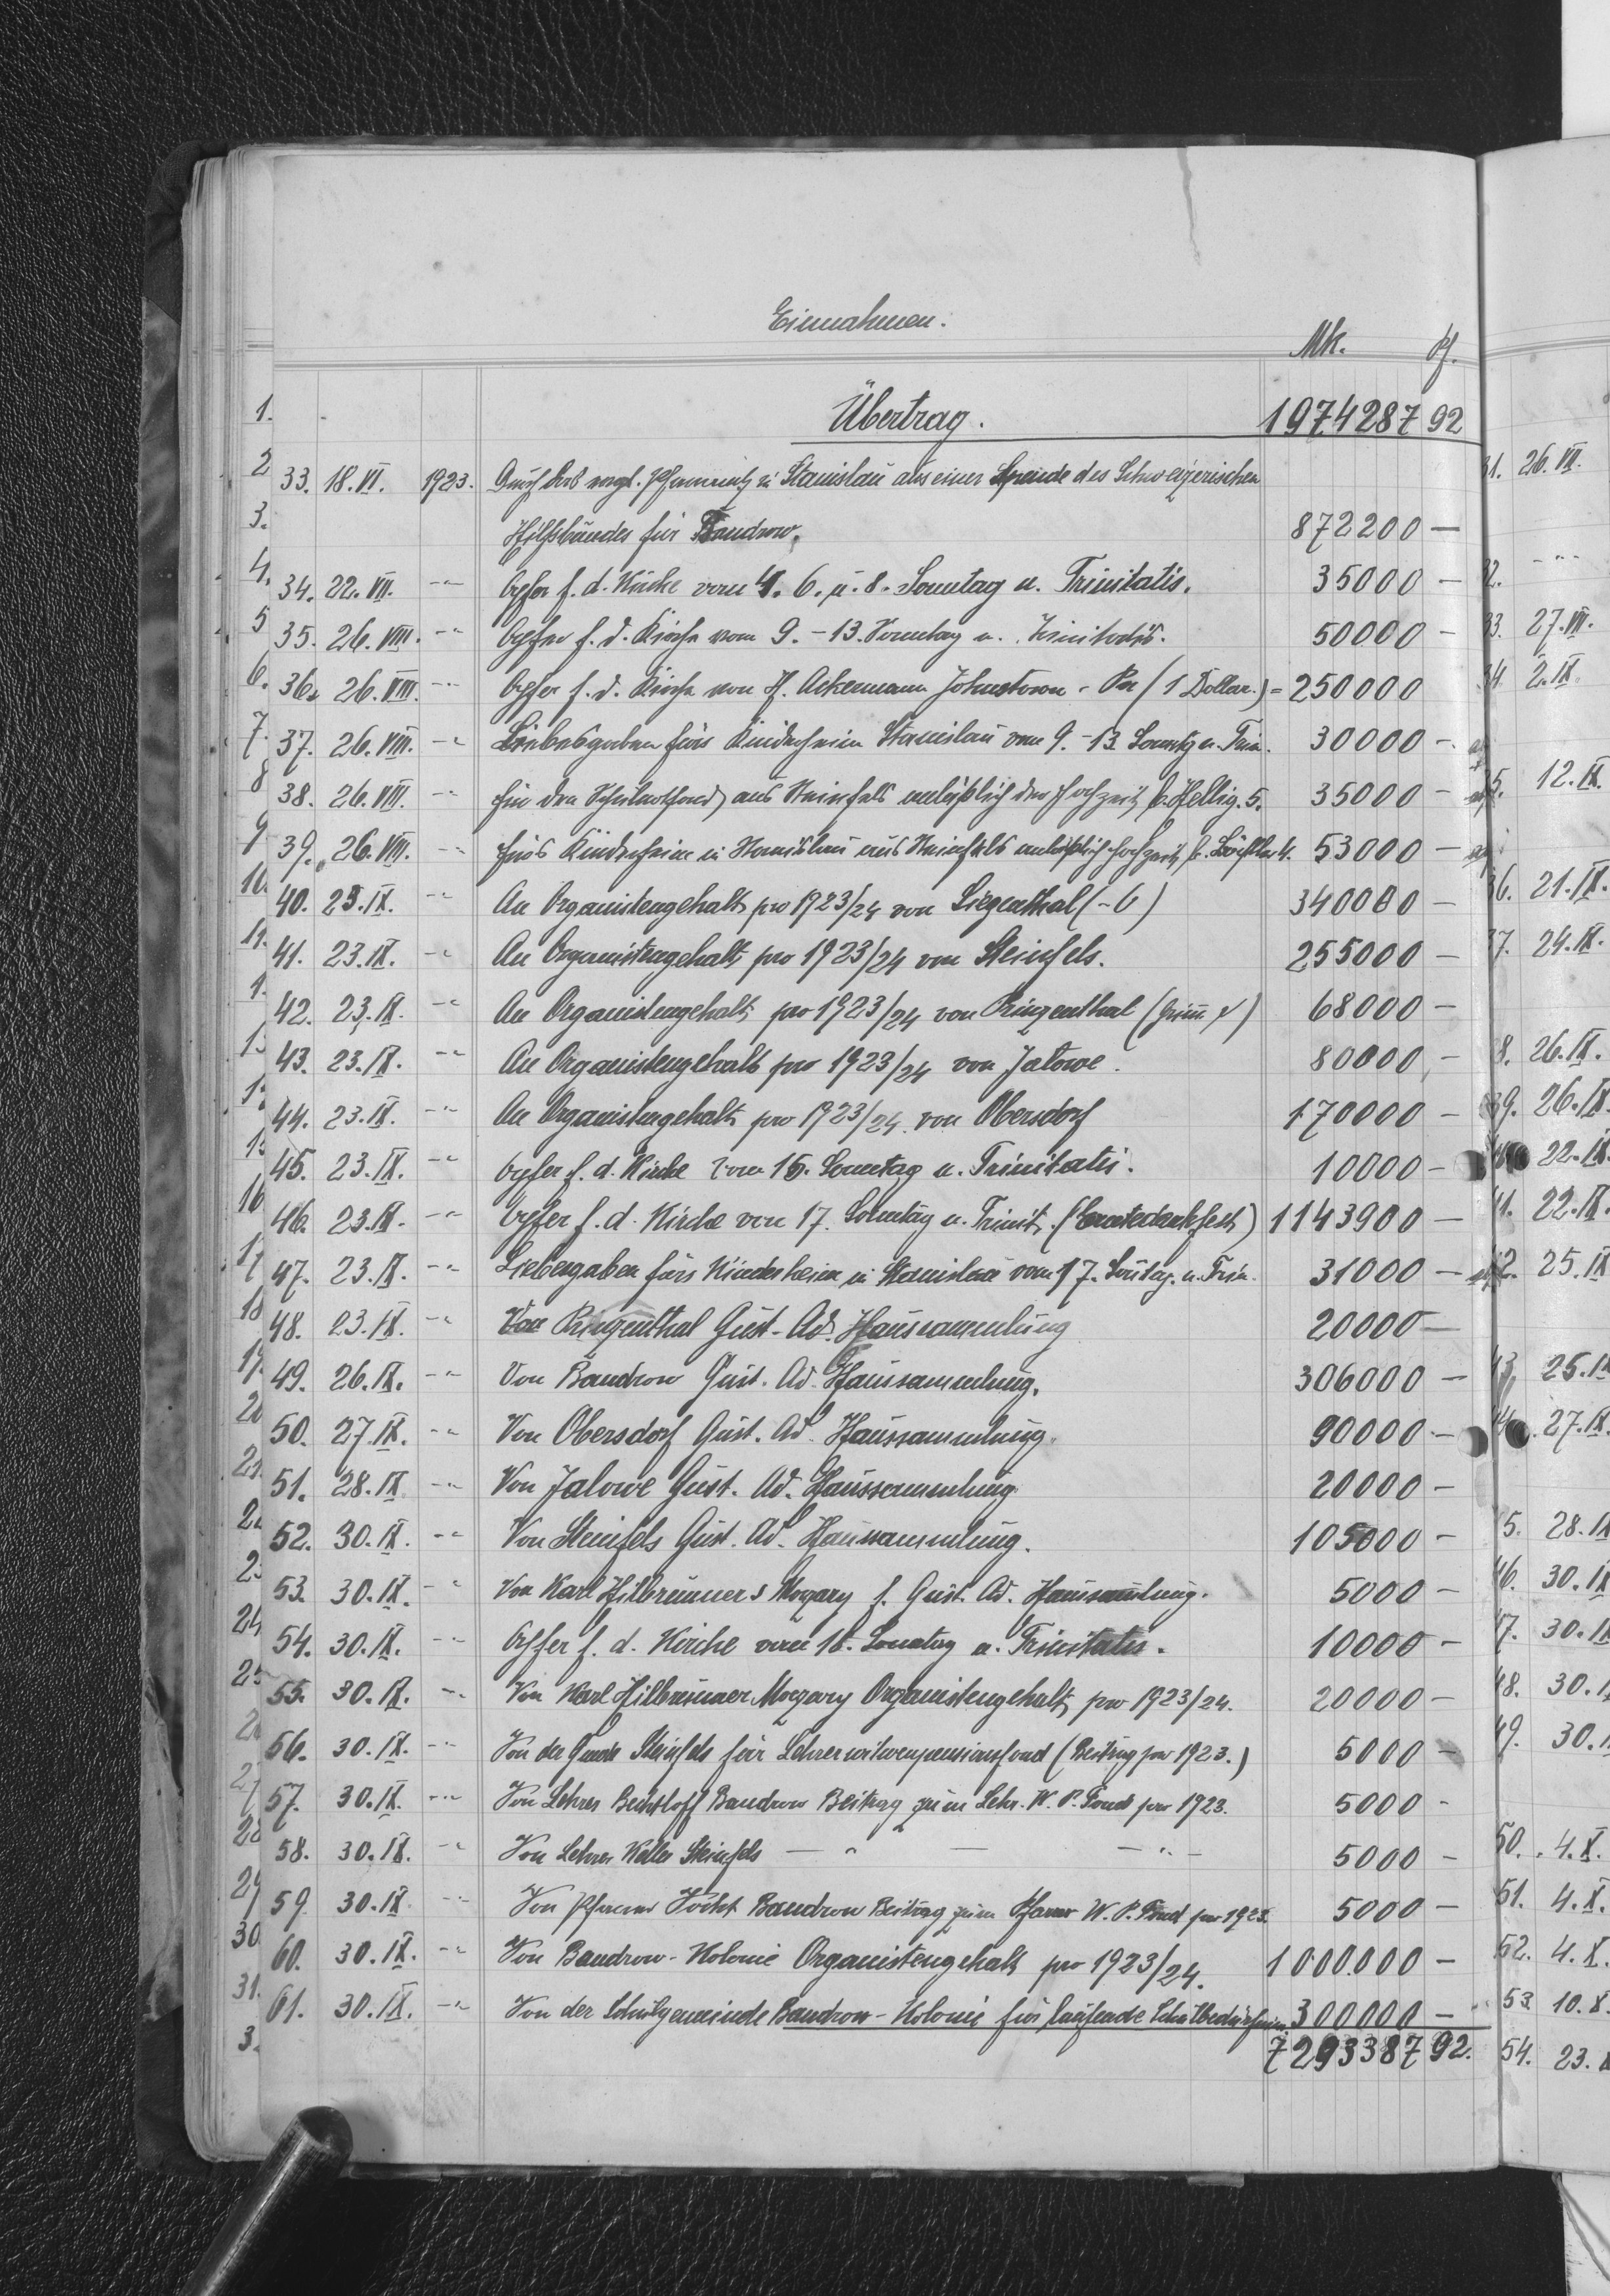 Einnahmen.
Mk. Pf.
1. Übertrag. 1974287 92
2 33. 18. VI. 1923. Durch das evgl. Pfarramt in Stanislau aus einer Spende des Schweizerischen
3. Hilfsbundes für Bandrow. 872200 —
4. 34. 22. VII. -"- Opfer f. d. Kirche vom 4. 6. u. 8. Sonntag n. Trinitatis. 35000 —
5 35. 26. VIII. -"- Opfer f. d. Kirche vom 9. – 13. Sonntag n. Trinitatis. 50000 —
6. 36. 26. VIII. -"- Opfer f. d. Kirche von H. Ackermann Johnstown - Pa (1 Dollar.) = 250000
7. 37. 26. VIII. -"- Liebesgaben fürs Kinderheim Stanislau vom 9. – 13. Sonntg n. Trin. 30000 —
8 38. 26. VIII. -"- Für den Schulnotfond aus Steinfels anläßlich der Hochzeit b. Hellig. 5. 35000 —
9 39. 26. VIII. -"- Fürs Kinderheim in Stanislau aus Steinfels anläßlich Hochzeit b. 4. 53000 —
10. 40. 23. IX. -"- An Organistengehalt pro 1923/24 von Siegenthal (-6) 340000 —
11. 41. 23. IX. -"- An Organistengehalt pro 1923/24 von Steinfels. 255000 —
1. 42. 23. IX. -"- An Organistengehalt pro 1923/24 von Ringenthal 68000 —
1. 43. 23. IX. -"- An Organistengehalt pro 1923/24 von Jalowe. 80000 —
1 44. 23. IX. -"- An Organistengehalt pro 1923/24 von Obersdorf 170000 —
15 45. 23. IX. -"- Opfer f. d. Kirche vom 15. Sonntag n. Trinitatis. 10000 —
16 46. 23. IX. -"- Opfer f. d. Kirche vom 17. Sonntag n. Trinit. (Erntedankfest) 1143900 —
17 47. 23. IX. -"- Liebesgaben fürs Kinderheim in Stanislau vom 17. Sontag. n. Trin. 31000 —
18 48. 23. IX. -"- Von Ringenthal Gust. Ad. Haussammlung 20000 —
19. 49. 26. IX. -"- Von Bandrow Gust. Ad. Haussammlung. 306000 —
20 50. 27. IX. -"- Von Obersdorf Gust. Ad. Haussammlung. 90000 —
21. 51. 28. IX -"- Von Jalowe Gust. Ad. Haussammlung 20000 —
2 52. 30. IX. -"- Von Steinfels Gust. Ad. Haussammlung. 105000 —
2 53. 30. IX. -"- Von Karl Hilbrunner Mogary f. Gust. Ad. Haussamlung. 5000 —
24 54. 30. IX. -"- Opfer f. d. Kirche vom 18. Sonntag n. Trinitatis. 10000 —
25 55. 30. IX. -"- Von Karl Hilbrunner Mogary Organistengehalt pro 1923/24. 20000 —
2 56. 30. IX. -"- Von der Gmde Steinfels für Lehrerwitwenpensionsfond (Beitrag pro 1923.) 5000 —
27 57. 30. IX. -"- Von Lehrer Bechtloff Bandrow Beitrag zum Lehr. W. P. Fond pro 1923. 5000 -
28 58. 30. IX. -"- Von Lehrer Keller Steinfels — " — — " — 5000 —
29 59 30. IX -"- Von Pfarrer Bandrow Beitrag zum Pfarrer W. P. Fond pro 1923. 5000 —
30 60. 30. IX. -"- Von Bandrow-Kolonie Organistengehalt pro 1923/24. 1000000 —
31. 61. 30. IX. -"- Von der Schulgemeinde Bandrow-Kolonie für laufende Schulbedürfnisse. 300000 —
3. 7293387 92.
31. 26. VII.
32. -"-
33. 27. VII.
34. 2. IX.
35. 12. IX.
36. 21. IX.
37. 24. IX.
38. 26. IX.
39. 26. IX.
22. IX.
41. 22. IX.
42. 25. IX
43. 25. IX
44. 27. IX.
45. 28. IX
46. 30. IX
47. 30. IX
48. 30. I
49. 30. I
50. 4. X.
51. 4. X.
52. 4. X.
53. 10. X.
54. 23.